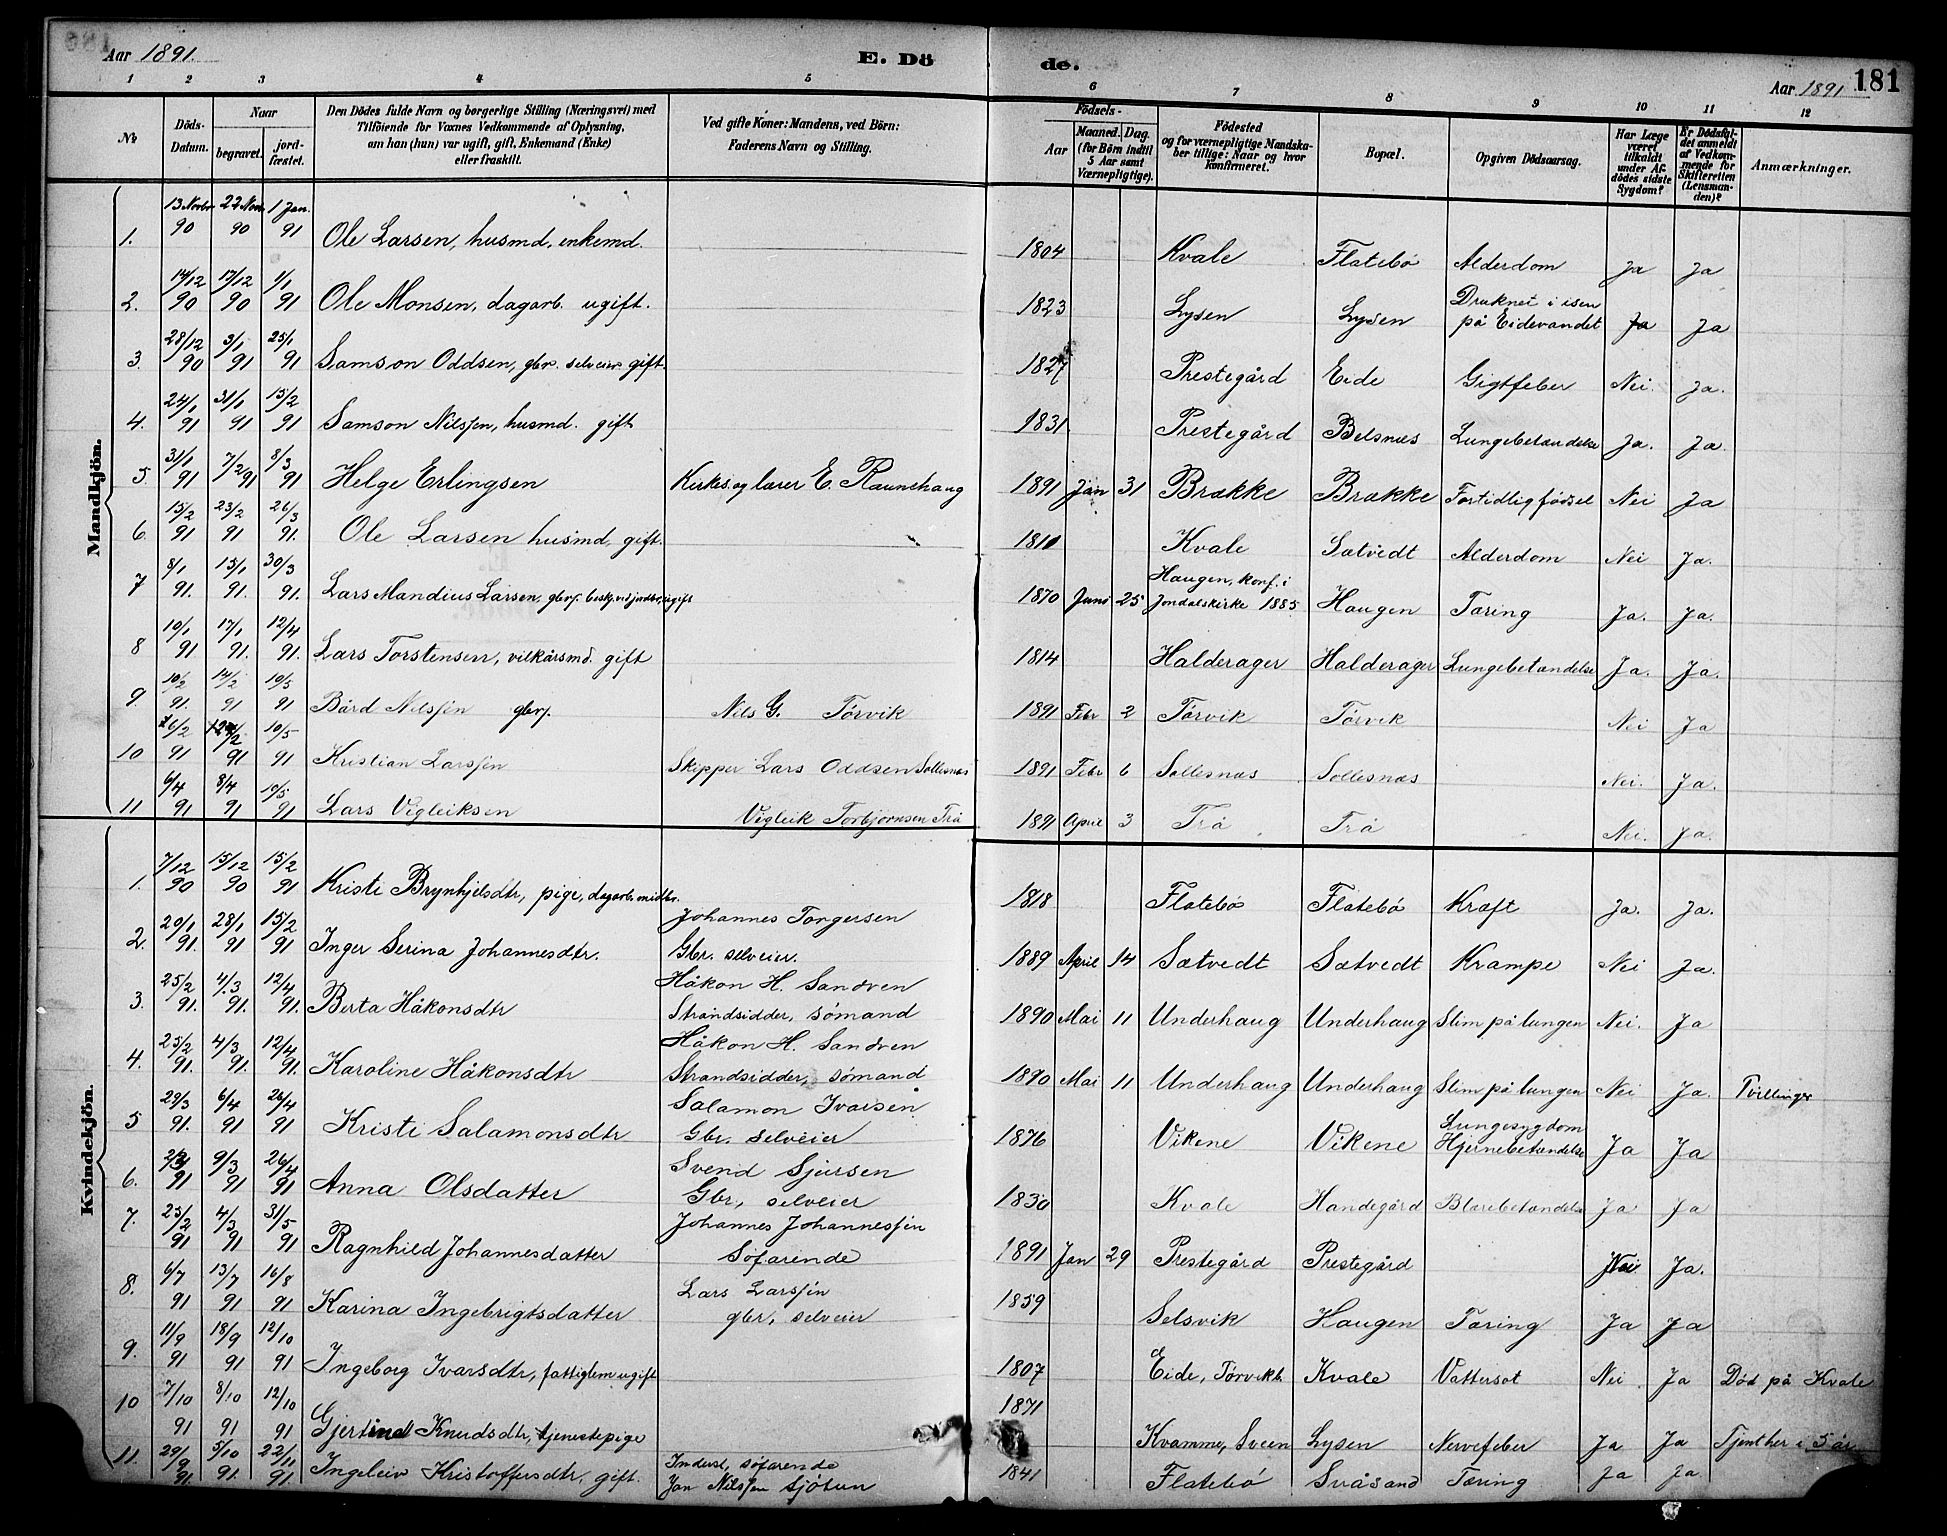 Aar 1891. E. Dö de. Aar 1891 181
1 2 3 4 5 6 7 8 9 10 11 12
№ Döds-Datum. Naar begravet. jordfæstet. Den Dödes fulde Navn og borgerlige Stilling (Næringsvei) med Tilföiende for Voxnes Vedkommende af Oplysning, om han (hun) var ugift, gift, Enkemand (Enke) eller fraskilt. Ved gifte Koner: Mandens, ved Börn: Faderens Navn og Stilling. Födsels- Aar Maaned. Dag. (for Börn indtil 5 Aar samt Værnepligtige). Födested og for værnepligtige Mandskaber tillige: Naar og hvor konfirmeret. Bopæl. Opgiven Dödsaarsag. Har Læge været tilkaldt under Afdödes sidste Sygdom? Er Dödsfaldet anmeldt af Vedkommende for Skifteretten (Lensmanden)? Anmærkninger.
Mandkjön.
1. 13 Novbr 90 22 Nov 90 1 Jan. 91 Ole Larsen, husmd. enkemd. 1804 Kvale Flatebö Alderdom Ja Ja
2. 14/12 90 17/12 90 1/1 91 Ole Monsen, dagarb. ugift. 1823 Lysen Lysen Druknet i isen på Eidevandet Ja Ja
3. 28/12 90 3/1 91 25/1 91 Samson Oddsen, gbr. selveier gift. 1827 Prestegård Eide Gigtfeber Nei Ja.
4. 24/1 91 31/1 91 15/2 91 Samson Nilssen, husmd. gift 1831 Prestegård Belsnæs Lungebetændelse Ja. Ja
5 31/1 91 7/2 91 8/3 91 Helge Erlingsen Kirkes. og lærer E. Raunehaug 1891 Jan 31 Brække Brække Fortidlig födsel Nei Ja
6. 15/2 91 23/2 91 26/3 91. Ole Larsen husmd. gift. 1810 Kvale Sætvedt Alderdom Nei Ja.
7 8/1 91. 15/1 91. 30/3 91. Lars Mandius Larsen, ugift 1870 Juni 25 Haugen, konf. i Jondals kirke 1885 Haugen Tæring Ja. Ja.
8 10/1 91 17/1 91. 12/4 91. Lars Torstensen, vilkårsmd. gift 1814 Halderager Halderager Lungebetændelse Ja. Ja.
9. 10/2 91. 14/2 91 10/5 91 Bård Nilssen gbrs. Nils G. Törvik 1891 Febr 2 Törvik Törvik Nei Ja
10 6/2 91 /2 91 10/5 91 Kristian Larssen Skipper Lars Oddsen Sollesnæs 1891 Febr 6 Sollesnæs Sollesnæs Nei. Ja.
11 6/4 91 8/4 91 10/5 91 Lars Vigleiksen Vigleik Torbjörnsen Trå 1891 April 3 Trå Trå Nei. Ja.
Kvindekjön.
1. 7/12 90 15/12 90 15/2 91 Kristi Brynhjelsdtr, pige, dagarb. 1818 Flatebö Flatebö Kræft Ja. Ja.
2. 20/1 91. 28/1 91 15/2 91 Inger Serina Johannesdtr. Johannes Torgersen Gbr. selveier. 1889 April 14 Sætvedt Sætvedt Krampe Nei Ja.
3. 25/2 91. 4/3 91. 12/4 91. Berta Håkonsdtr Håkon H. Sandven Strandsidder, sömand 1890 Mai 11 Underhaug Underhaug Slim på lungen Nei. Ja
4. 25/2 91. 4/3 91. 12/4 91. Karoline Håkonsdtr Håkon H. Sandven Strandsidder, sömand 1890 Mai 11 Underhaug Underhaug Slim på lungen Nei Ja. Tvillinger
5 29/3 91. 6/4 91 26/4 91 Kristi Salamonsdtr Salamon Ivarsen Gbr. selveier 1876 Vikene Vikene Lungesygdom Hjernebetændelse Ja Ja
6. 2/3 91 9/3 91 26/4 91 Anna Olsdatter Svend Sjursen Gbr, selveier 1830 Kvale Handegård Blærebetændelse Ja Ja
7. 25/2 91 4/3 91 31/5 91 Ragnhild Johannesdatter Johannes Johannessen Söfarende 1891 Jan 29 Prestegård Prestegård Nei Ja.
8. 6/7 91 13/7 91 16/8 91 Karina Ingebrigtsdatter Lars Larssen gbr, selveier 1859 Selsvik Haugen Tæring Ja Ja
9. 11/9 91 18/9 91 12/10 91 Ingeborg Ivarsdtr, fattiglem ugift 1807 Eide, Törvikb. Kvale Vattersot Nei Ja Död på Kvale
10 7/10 91 8/10 91 12/10 91 Gjertrud Knudsdtr, tjenestepige 1871 Kvamme, Sveen Lysen Nervefeber Ja Ja Tjent her i 5 år
11. 29/9 91. 5/10 91. 22/11 91. Ingeleiv Kristoffersdtr, gift. Inderst, söfarende Jan Nilssen Sjötun 1841 Flatebö Svåsand Tæring Ja Ja